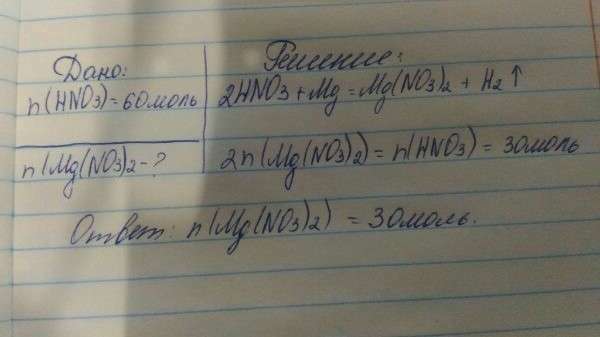 Дано:
n(HNO3)=60моль
n(Mg(NO3)2-?
Решение:
2HNO3+Mg=Mg(NO3)2+H2↑
2n(Mg(NO3)2)=n(HNO3)=30моль
Ответ: n(Mg(NO3)2)=30моль.